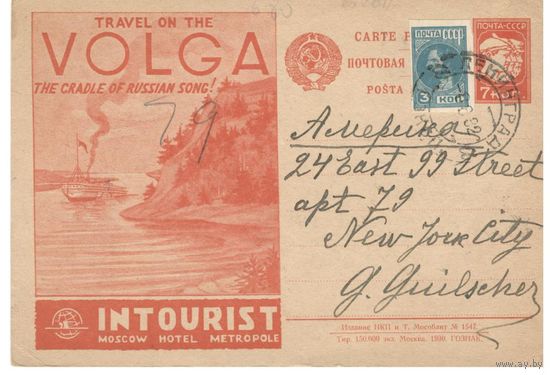 TRAVEL ON THE
VOLGA
THE CRADLE OF RUSSIAN SONG!
79
INTOURIST
MOSCOW HOTEL METROPOLE
CARTE
ПОЧТОВАЯ
POŠTA
ПОЧТА СССР
3 КОП
ПОЧТА-СССР
7 К
ЛЕНИНГРАД
Америка
24 East 99 Street
apt 79
New York City
G. Guilscher
Издание НКП и Т. Мособлит № 1547.
Тир. 150.000 экз. Москва. 1930. ГОЗНАК.
www.ay.by